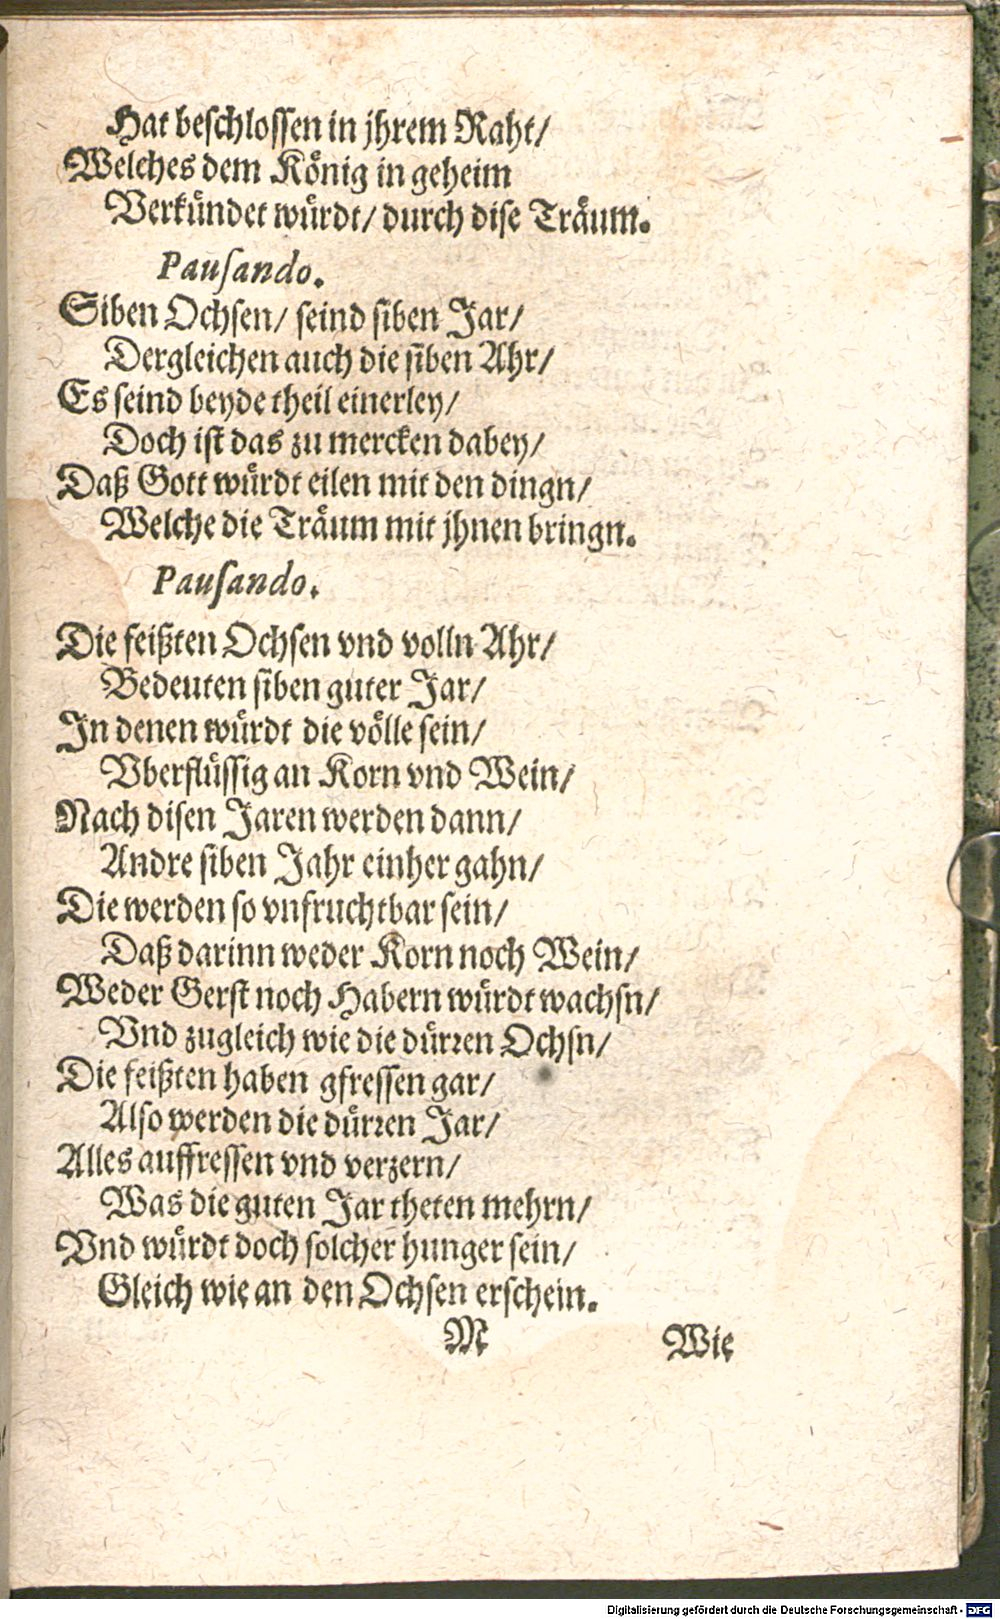 Hat beschlossen in jhrem Raht/
Welches dem König in geheim
Verkündet würdt/ durch dise Träum.
Pausando.
Siben Ochsen/ seind siben Jar/
Dergleichen auch die siben Ahr/
Es seind beyde theil einerley/
Doch ist das zu mercken dabey/
Daß Gott würdt eilen mit den dingn/
Welche die Träum mit jhnen bringn.
Pausando.
Die feißten Ochsen vnd volln Ahr/
Bedeuten siben guter Jar/
In denen würdt die völle sein/
Vberflüssig an Korn vnd Wein/
Nach disen Jaren werden dann/
Andre siben Jahr einher gahn/
Die werden so vnfruchtbar sein/
Daß darinn weder Korn noch Wein/
Weder Gerst noch Habern würdt wachsn/
Vnd zugleich wie die dürren Ochsn/
Die feißten haben gfressen gar/
Also werden die dürren Jar/
Alles auffressen vnd verzern/
Was die guten Jar theten mehrn/
Vnd würdt doch solcher hunger sein/
Gleich wie an den Ochsen erschein.
M Wie
Digitalisierung gefördert durch die Deutsche Forschungsgemeinschaft - DFG